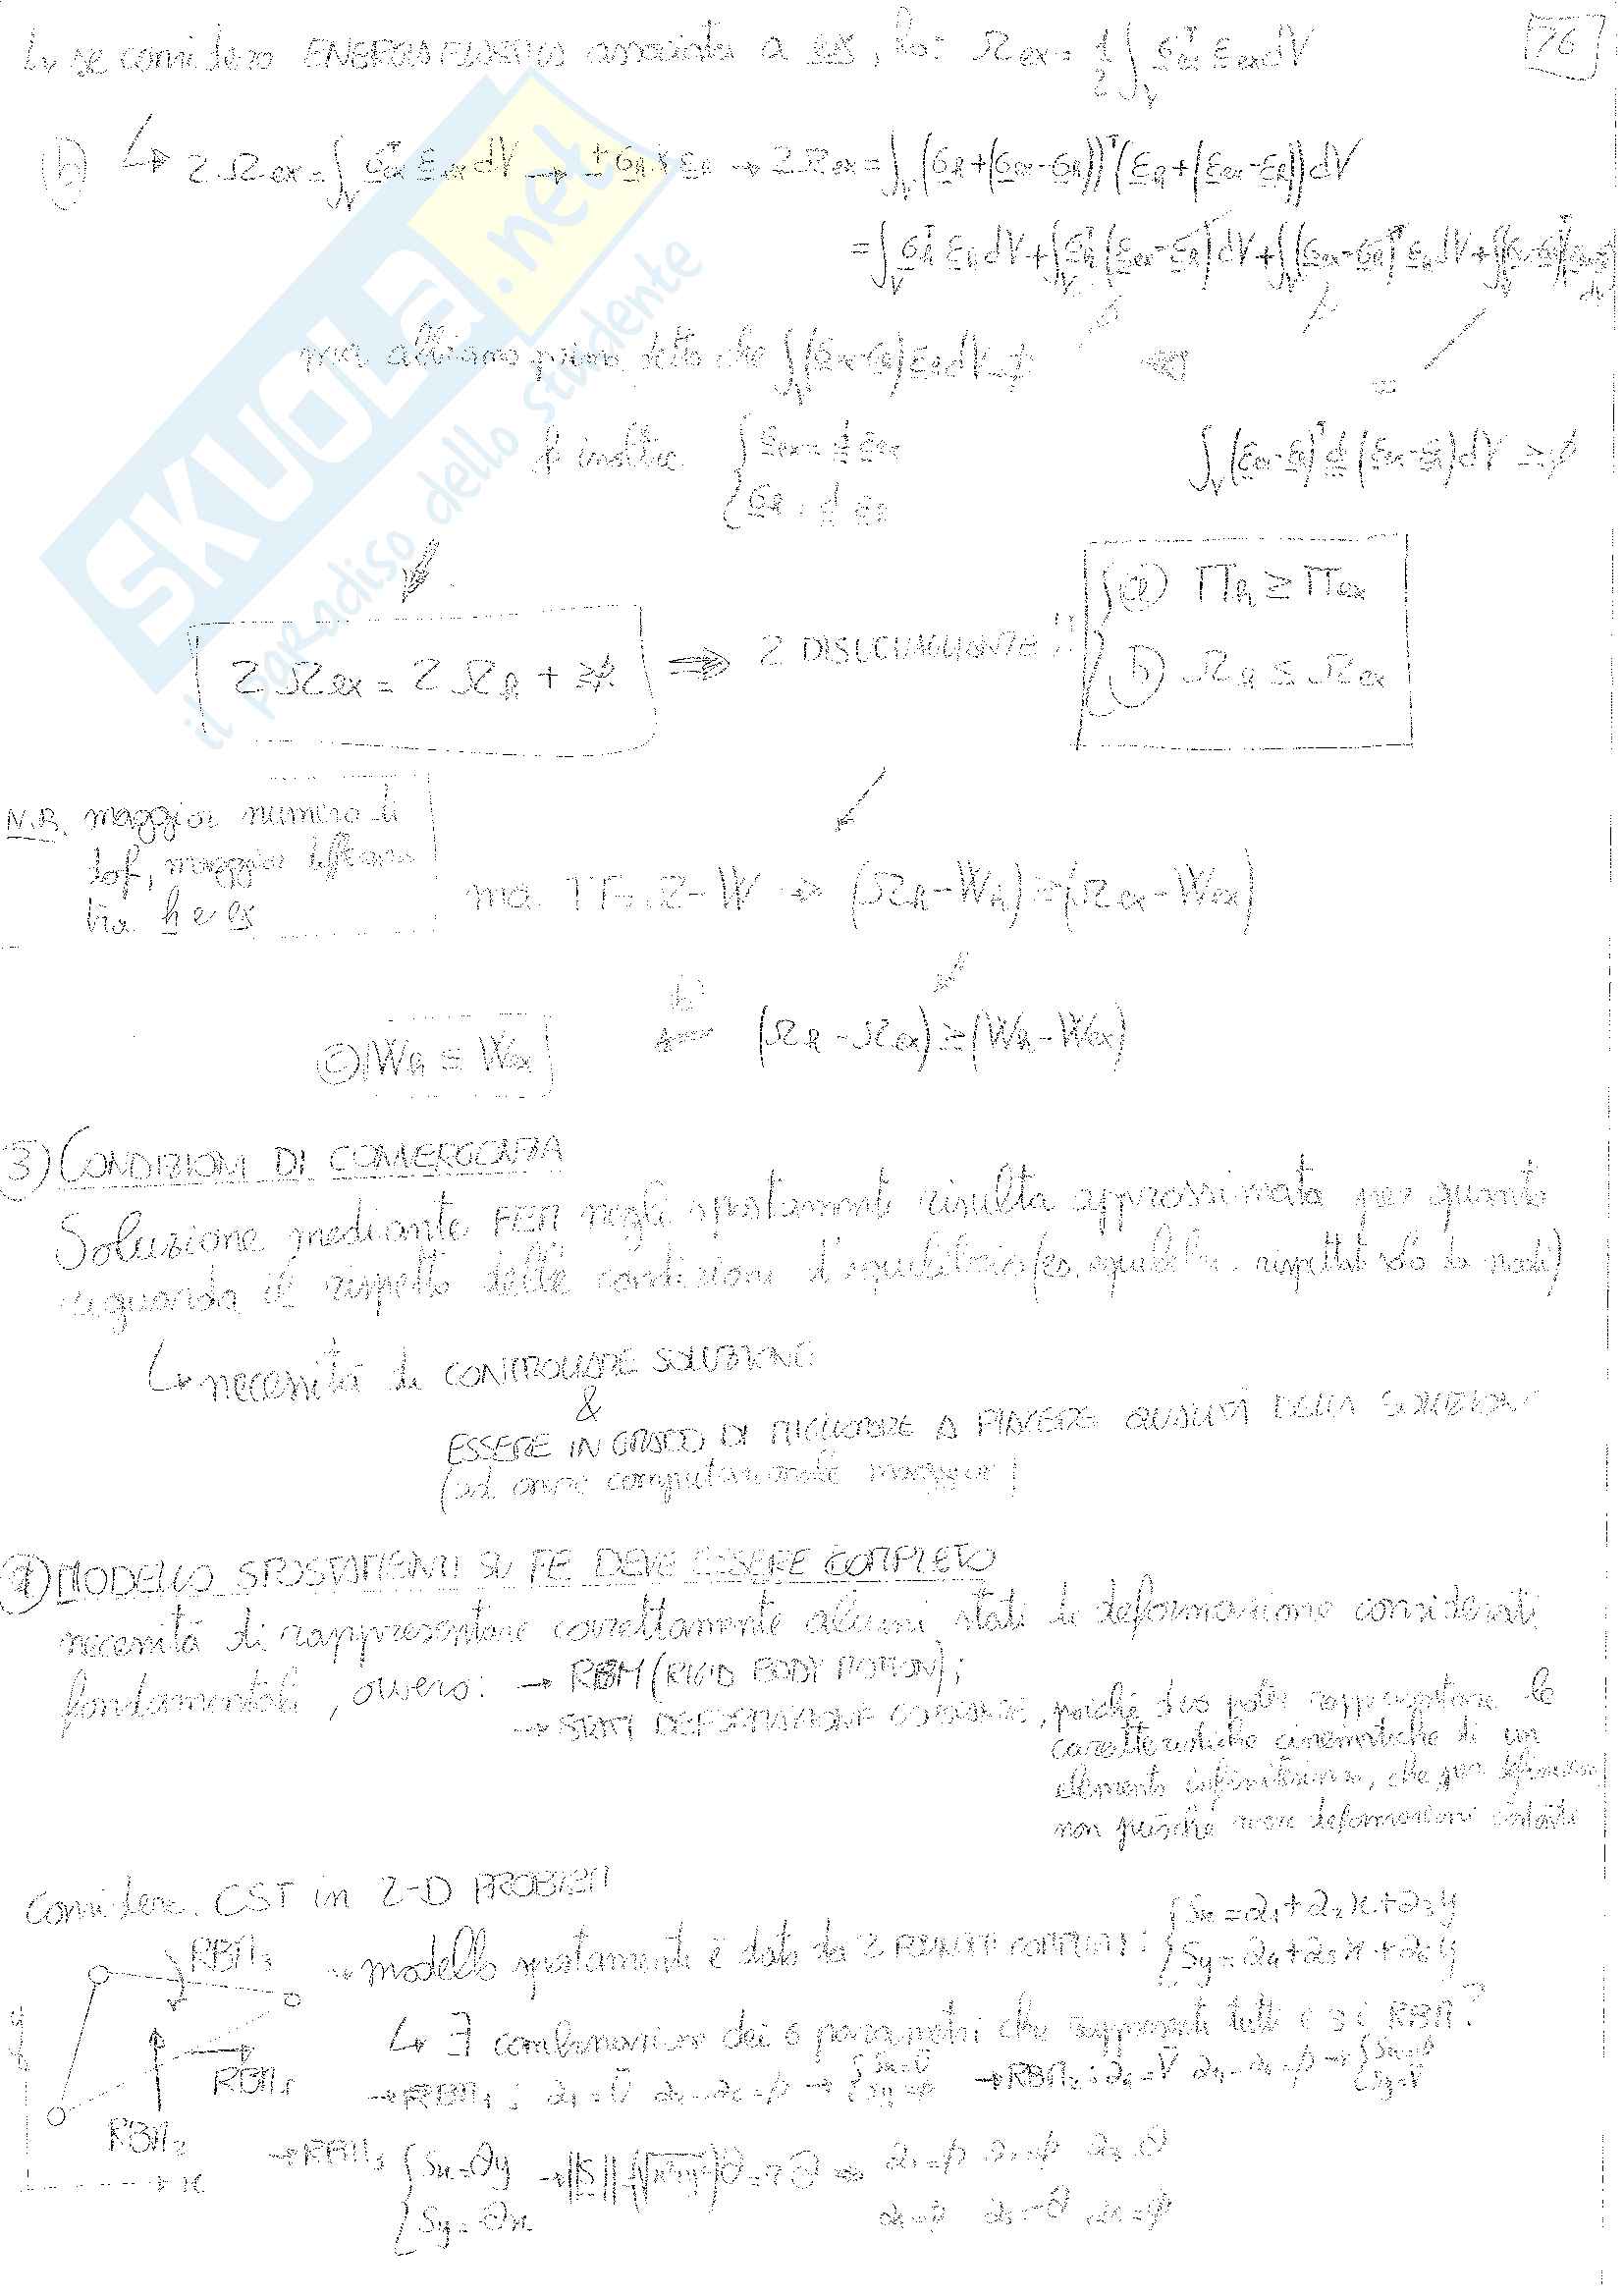 ↳ se considero ENERGIA ELASTICA associata a ex, ho: Ωex = 1/2 ∫v σex^T εex dV
76
b) ↳ 2Ωex = ∫v σex^T εex dV → ± σh & εh → 2Ωex = ∫v (σh+(σex-σh))^T (εh+(εex-εh)) dV
= ∫v σh^T εh dV + ∫v σh^T (εex-εh) dV + ∫v (σex-σh)^T εh dV + ∫v (σex-σh)^T (εex-εh) dV
ma abbiamo prima detto che ∫v (σex-σh) εh dV =
inoltre { σex = d εex
{ σh = d εh
∫v (εex-εh)^T d (εex-εh) dV ≥ ø
2Ωex = 2Ωh + ≥ø ⇒ 2 DISUGUAGLIANZE !!
{ a) Πh ≥ Πex
b) Ωh ≤ Ωex
N.B. maggior numero di
dof, maggior differenza
tra h e ex
ma Π = Ω - W ⇒ (Ωh - Wh) ≥ (Ωex - Wex)
c) Wh ≤ Wex ⇐ b) (Ωh - Ωex) ≥ (Wh - Wex)
3) CONDIZIONI DI CONVERGENZA
Soluzione mediante FEM negli spostamenti risulta approssimata per quanto
riguarda il rispetto delle condizioni d'equilibrio (es. equilibri rispettati solo ai nodi)
↳ necessità di CONTROLLARE SOLUZIONE
&
ESSERE IN GRADO DI MIGLIORARE A PIACERE QUALITÀ DELLA SOLUZIONE
(ad onere computazionale maggiore)
1) MODELLO SPOSTAMENTI SU FE DEVE ESSERE COMPLETO
necessità di rappresentare correttamente alcuni stati di deformazione considerati
fondamentali, ovvero: → RBM (RIGID BODY MOTION);
→ STATI DEFORMAZIONE COSTANTE, poiché devo poter rappresentare le
caratteristiche cinematiche di un
elemento infinitesimo, che per definizione
non può che avere deformazioni costanti
Considero CST in 2-D PROBLEM
RBM3
RBM1
RBM2
y
x
→ modello spostamenti è dato da 2 POLINOMI COMPLETI: { Sx = α1 + α2x + α3y
{ Sy = α4 + α5x + α6y
↳ ∃ combinazione dei 6 parametri che rappresenti tutti e 3 i RBM?
→ RBM1: α1 = V̄ α2 - α6 = ø → { Sx = V̄ { Sy = ø → RBM2: α4 = V̄ → { Sx = ø { Sy = V̄
→ RBM3 { Sx = θy
{ Sy = -θx